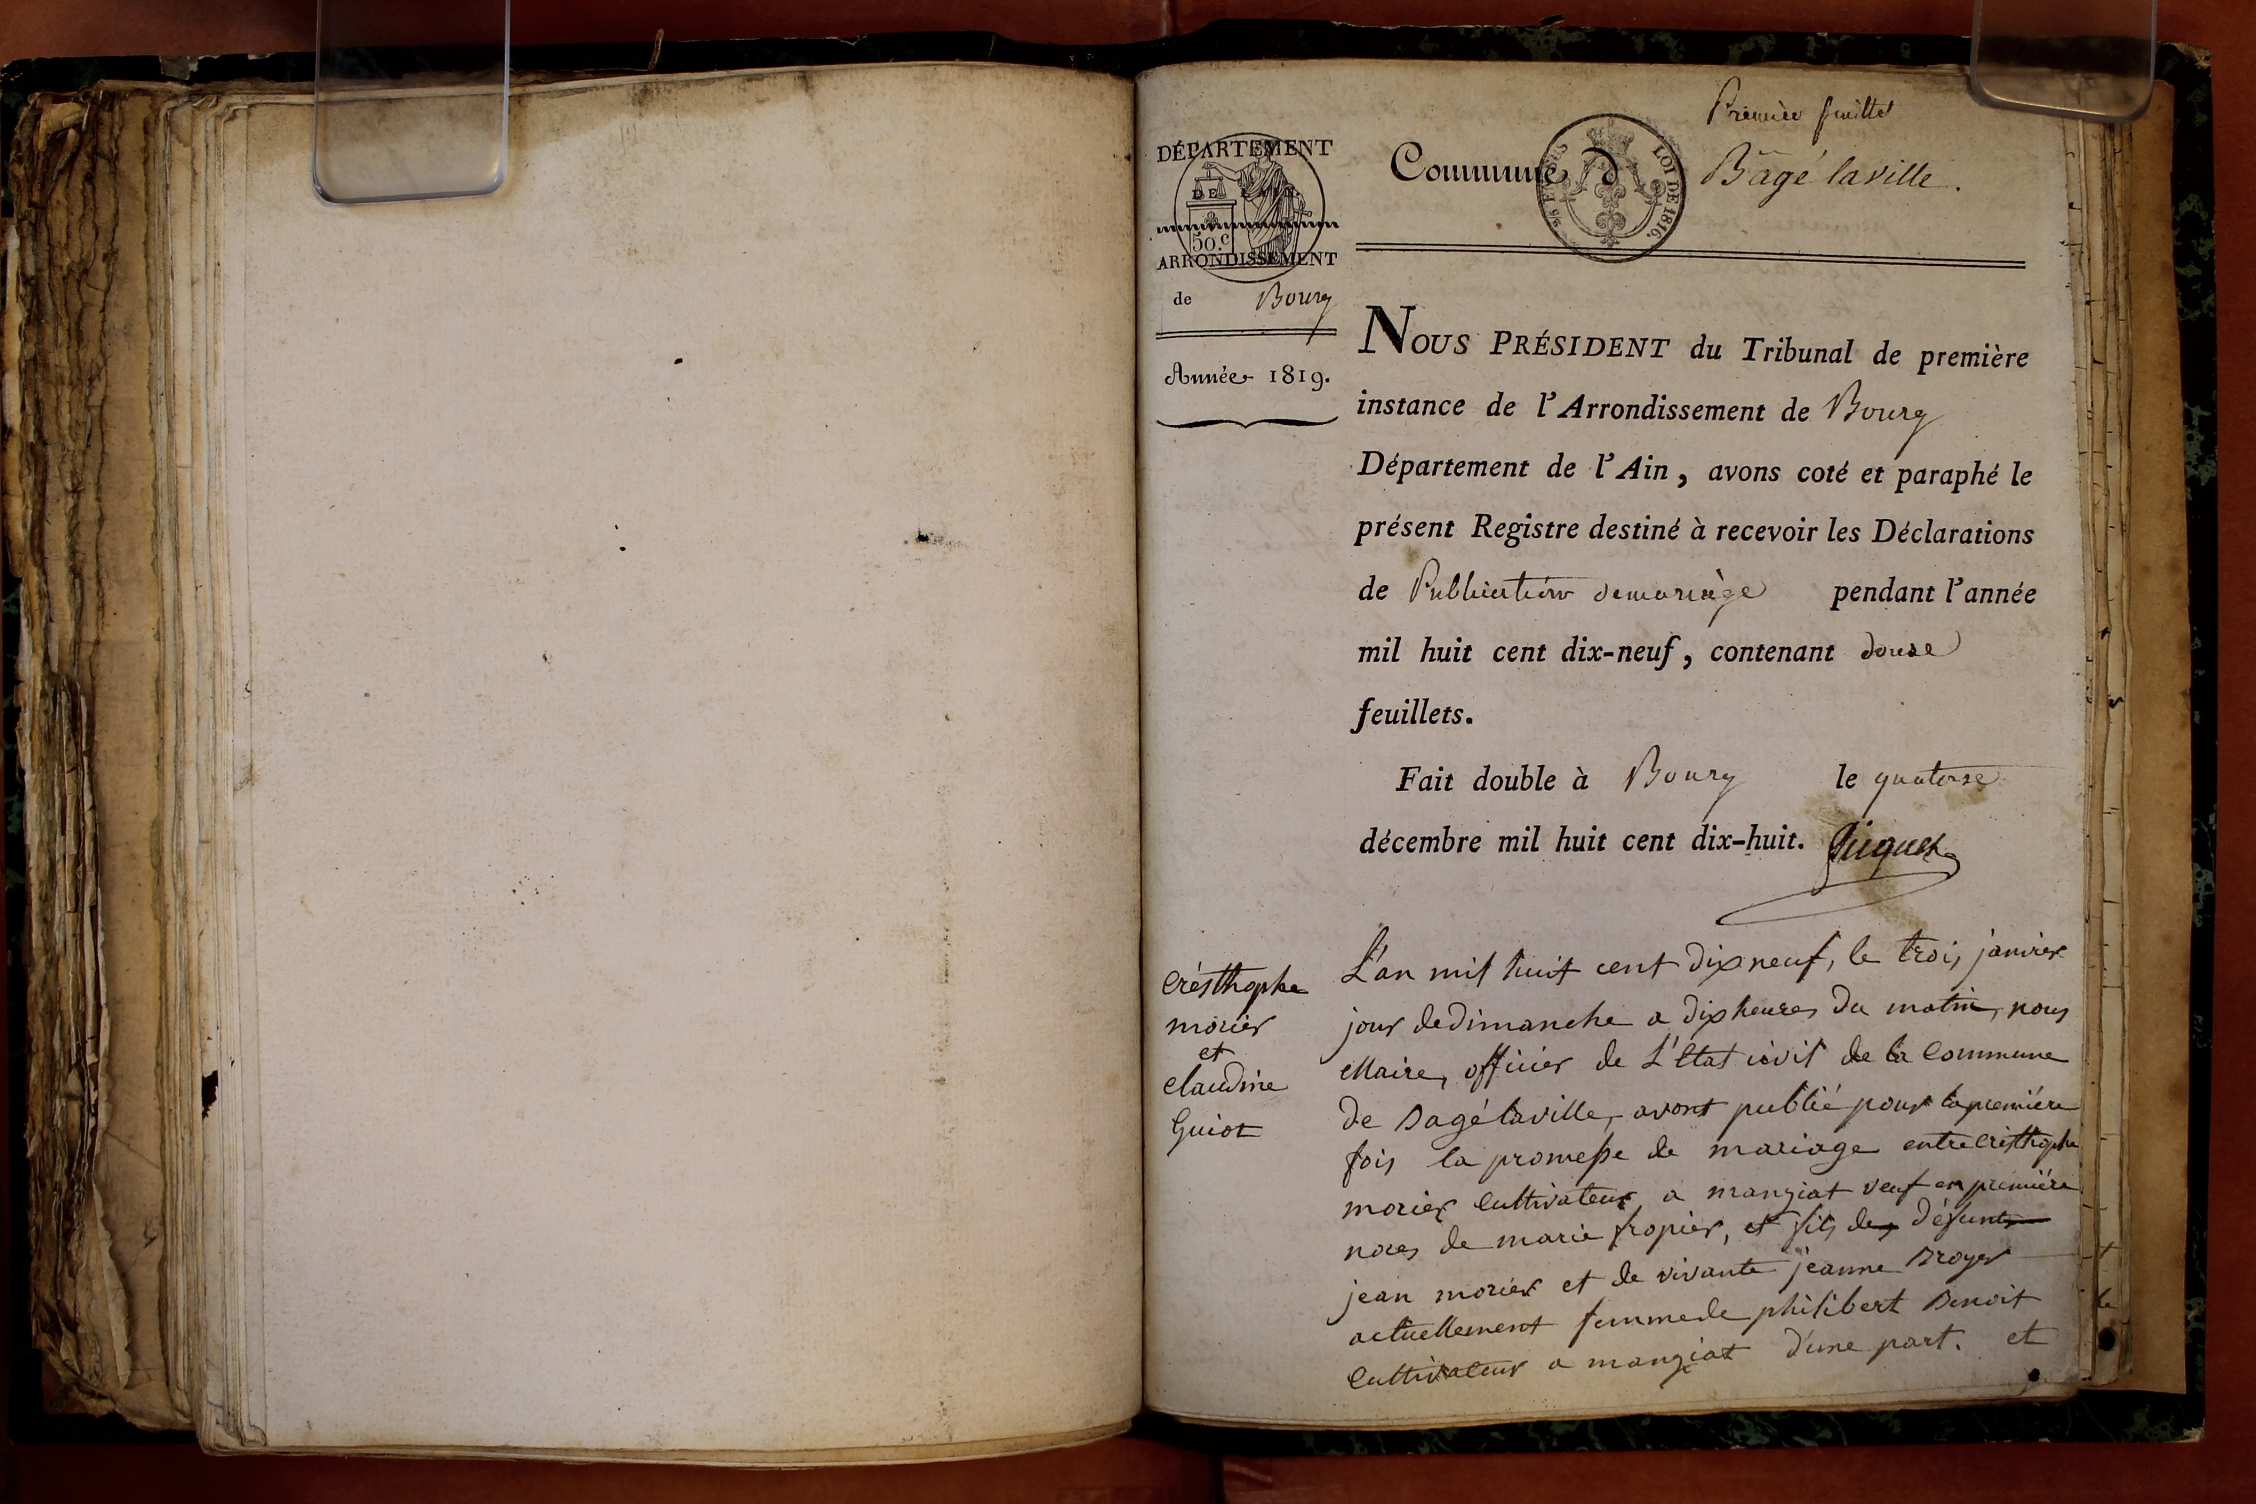 Premier feuillet
DÉPARTEMENT
DE L'AIN
50.c
ARRONDISSEMENT
de Bourg
Année 1819.
Commune d Bâgé laville.
LOI DE 1816.
NOUS PRÉSIDENT du Tribunal de première
instance de l'Arrondissement de Bourg
Département de l'Ain, avons coté et paraphé le
présent Registre destiné à recevoir les Déclarations
de Publication demariage pendant l'année
mil huit cent dix-neuf, contenant douze
feuillets.
Fait double à Bourg le quatorze
décembre mil huit cent dix-huit.
Cresthophe
morier
et
claudine
Guiot
L'an mil huit cent dix neuf, le trois janvier
jour dedimanche a dix heures du matin, nous
Maire, officier de L'État civil de la Commune
de Bagé laville, avont publié pour la premiére
fois la promesse de mariage entre Cristhophe
morier Cultivateur a mangiat veuf en premiére
noces de marie fropier, et fils de défunt
jean morier et de vivante jeanne Broyer
actuellement femmede philibert Benoit
Cultivateur a mangiat d'une part. et